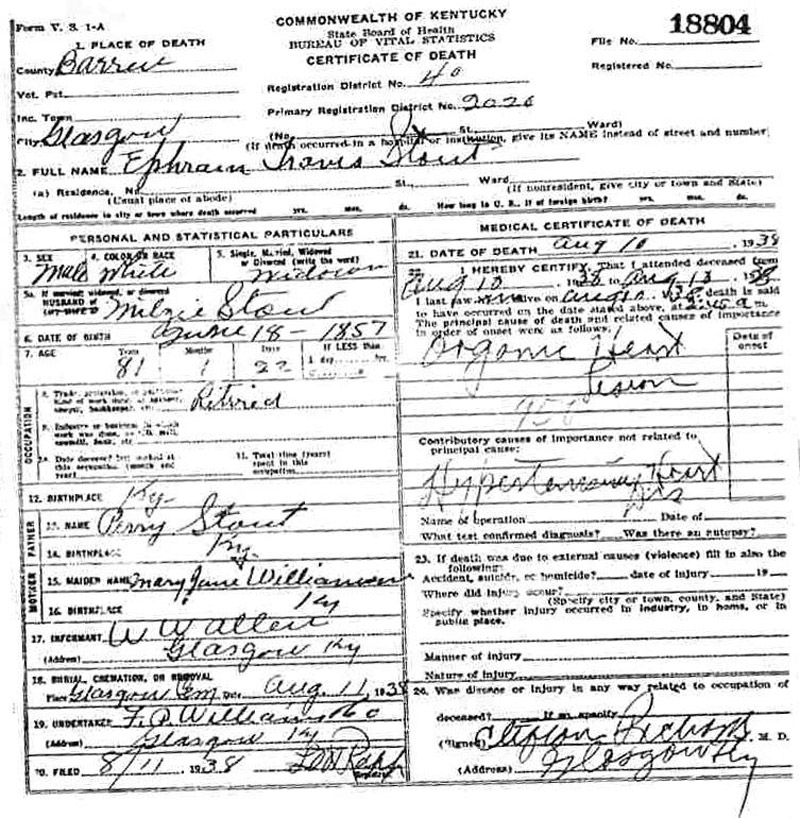 Form V. S. 1-A
COMMONWEALTH OF KENTUCKY
State Board of Health
BUREAU OF VITAL STATISTICS
CERTIFICATE OF DEATH
File No. 18804
Registered No.
1. PLACE OF DEATH
County Barren
Vot. Pct.
Inc. Town
City Glasgow
Registration District No. 40
Primary Registration District No. 2020
(No. St. Ward)
(If death occurred in a hospital or institution, give its NAME instead of street and number)
2. FULL NAME Ephraim Travis Stout
(a) Residence. No. St., Ward
(Usual place of abode) (If nonresident, give city or town and State)
Length of residence in city or town where death occurred yrs. mos. ds. How long in U. S., if of foreign birth? yrs. mos. ds.
PERSONAL AND STATISTICAL PARTICULARS
3. SEX Male
4. COLOR OR RACE White
5. Single, Married, Widowed or Divorced (write the word)
5a. If married, widowed, or divorced
HUSBAND of Stout
6. DATE OF BIRTH June 18 - 1857
7. AGE Years 81 Months 1 Days 22 If LESS than
1 day
8. Trade, profession, or particular kind of work done Retired
9. Industry or business in which work was done
10. Date deceased last worked at this occupation (month and year)
11. Total time (years) spent in this occupation
OCCUPATION
12. BIRTHPLACE Ky.
FATHER
13. NAME Perry Stout
14. BIRTHPLACE Ky.
MOTHER
15. MAIDEN NAME Mary Jane Williamson
16. BIRTHPLACE Ky
17. INFORMANT W W Allen
(Address) Glasgow Ky
18. BURIAL, CREMATION, OR REMOVAL
Place Glasgow Cem Date Aug. 11 1938
19. UNDERTAKER F. P. Williams & Co
(Address) Glasgow Ky
20. FILED 8/11 1938
Registrar
MEDICAL CERTIFICATE OF DEATH
21. DATE OF DEATH Aug 10 1938
22. I HEREBY CERTIFY, That I attended deceased from
Aug 10 1938 to Aug 13 1938
I last saw him alive on Aug 10 1938 death is said
to have occurred on the date stated above, at m
The principal cause of death and related causes of importance
in order of onset were as follows:
Date of onset
Organic Heart
Lesion
Contributory causes of importance not related to
principal cause:
Hypertensive Heart
Dis
Name of operation Date of
What test confirmed diagnosis? Was there an autopsy?
23. If death was due to external causes (violence) fill in also the
following:
Accident, suicide, or homicide? date of injury 19
Where did injury occur?
(Specify city or town, county, and State)
Specify whether injury occurred in industry, in home, or in
public place.
Manner of injury
Nature of injury
24. Was disease or injury in any way related to occupation of
deceased? If so specify
(Signed) Clifton M. D.
(Address) Glasgow Ky